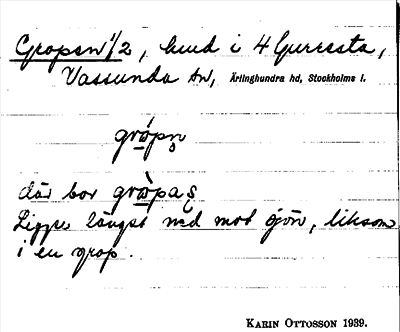 Gropen 1/2, hmd i 4 Gurresta,
Vassunda sn, Ärlinghundra hd, Stockholms l.
grópn̥
där bor gròpas
Ligger längst ned mot sjön, liksom
i en grop.
KARIN OTTOSSON 1939.